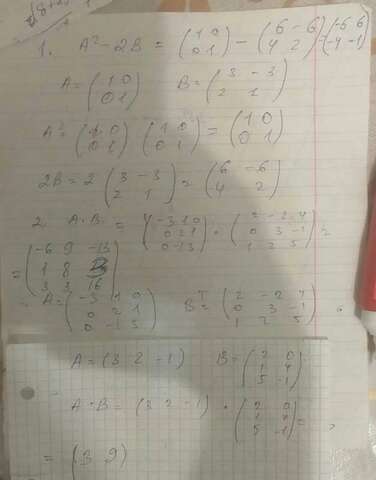 1. A² - 2B = (1 0 / 0 1) - (6 -6 / 4 2) = (-5 6 / -4 -1)
A = (1 0 / 0 1) B = (3 -3 / 2 1)
A² = (1 0 / 0 1) (1 0 / 0 1) = (1 0 / 0 1)
2B = 2 (3 -3 / 2 1) = (6 -6 / 4 2)
2. A·B = (-3 1 0 / 0 2 1 / 0 -1 3) · (2 -2 4 / 0 3 -1 / 1 2 5) =
= (-6 9 -13 / 1 8 / 3 3 16)
A = (-3 1 0 / 0 2 1 / 0 -1 3) Bᵀ = (2 -2 4 / 0 3 -1 / 1 2 5)
A = (3 2 -1) B = (2 0 / 1 4 / 5 -1)
A·B = (3 2 -1) · (2 0 / 1 4 / 5 -1) =
= (3 9)